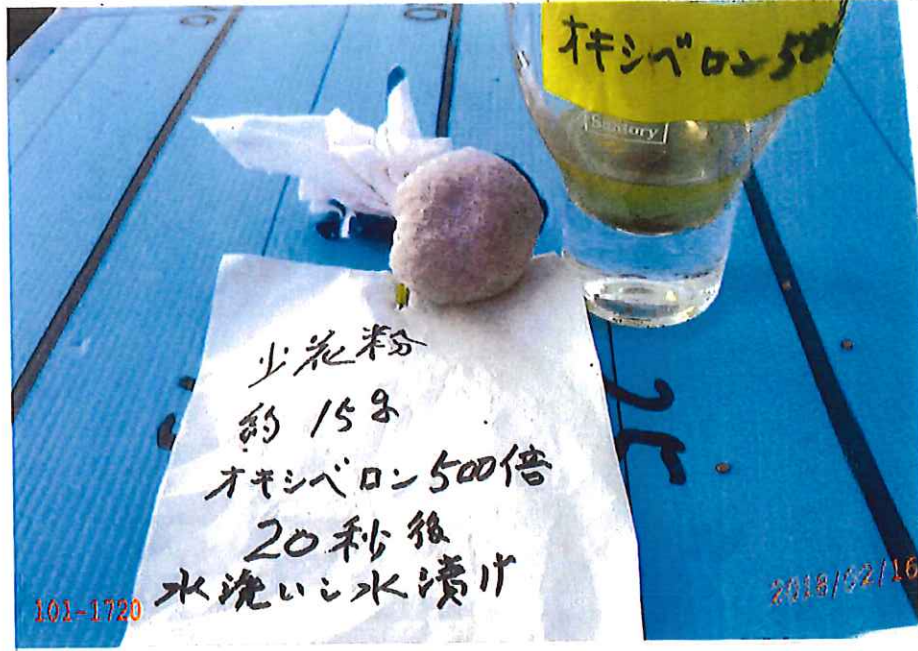 オキシベロン500
Suntory
少花粉
約15g
オキシベロン500倍
20秒後
水洗いし水漬け
101-1720
2018/02/16